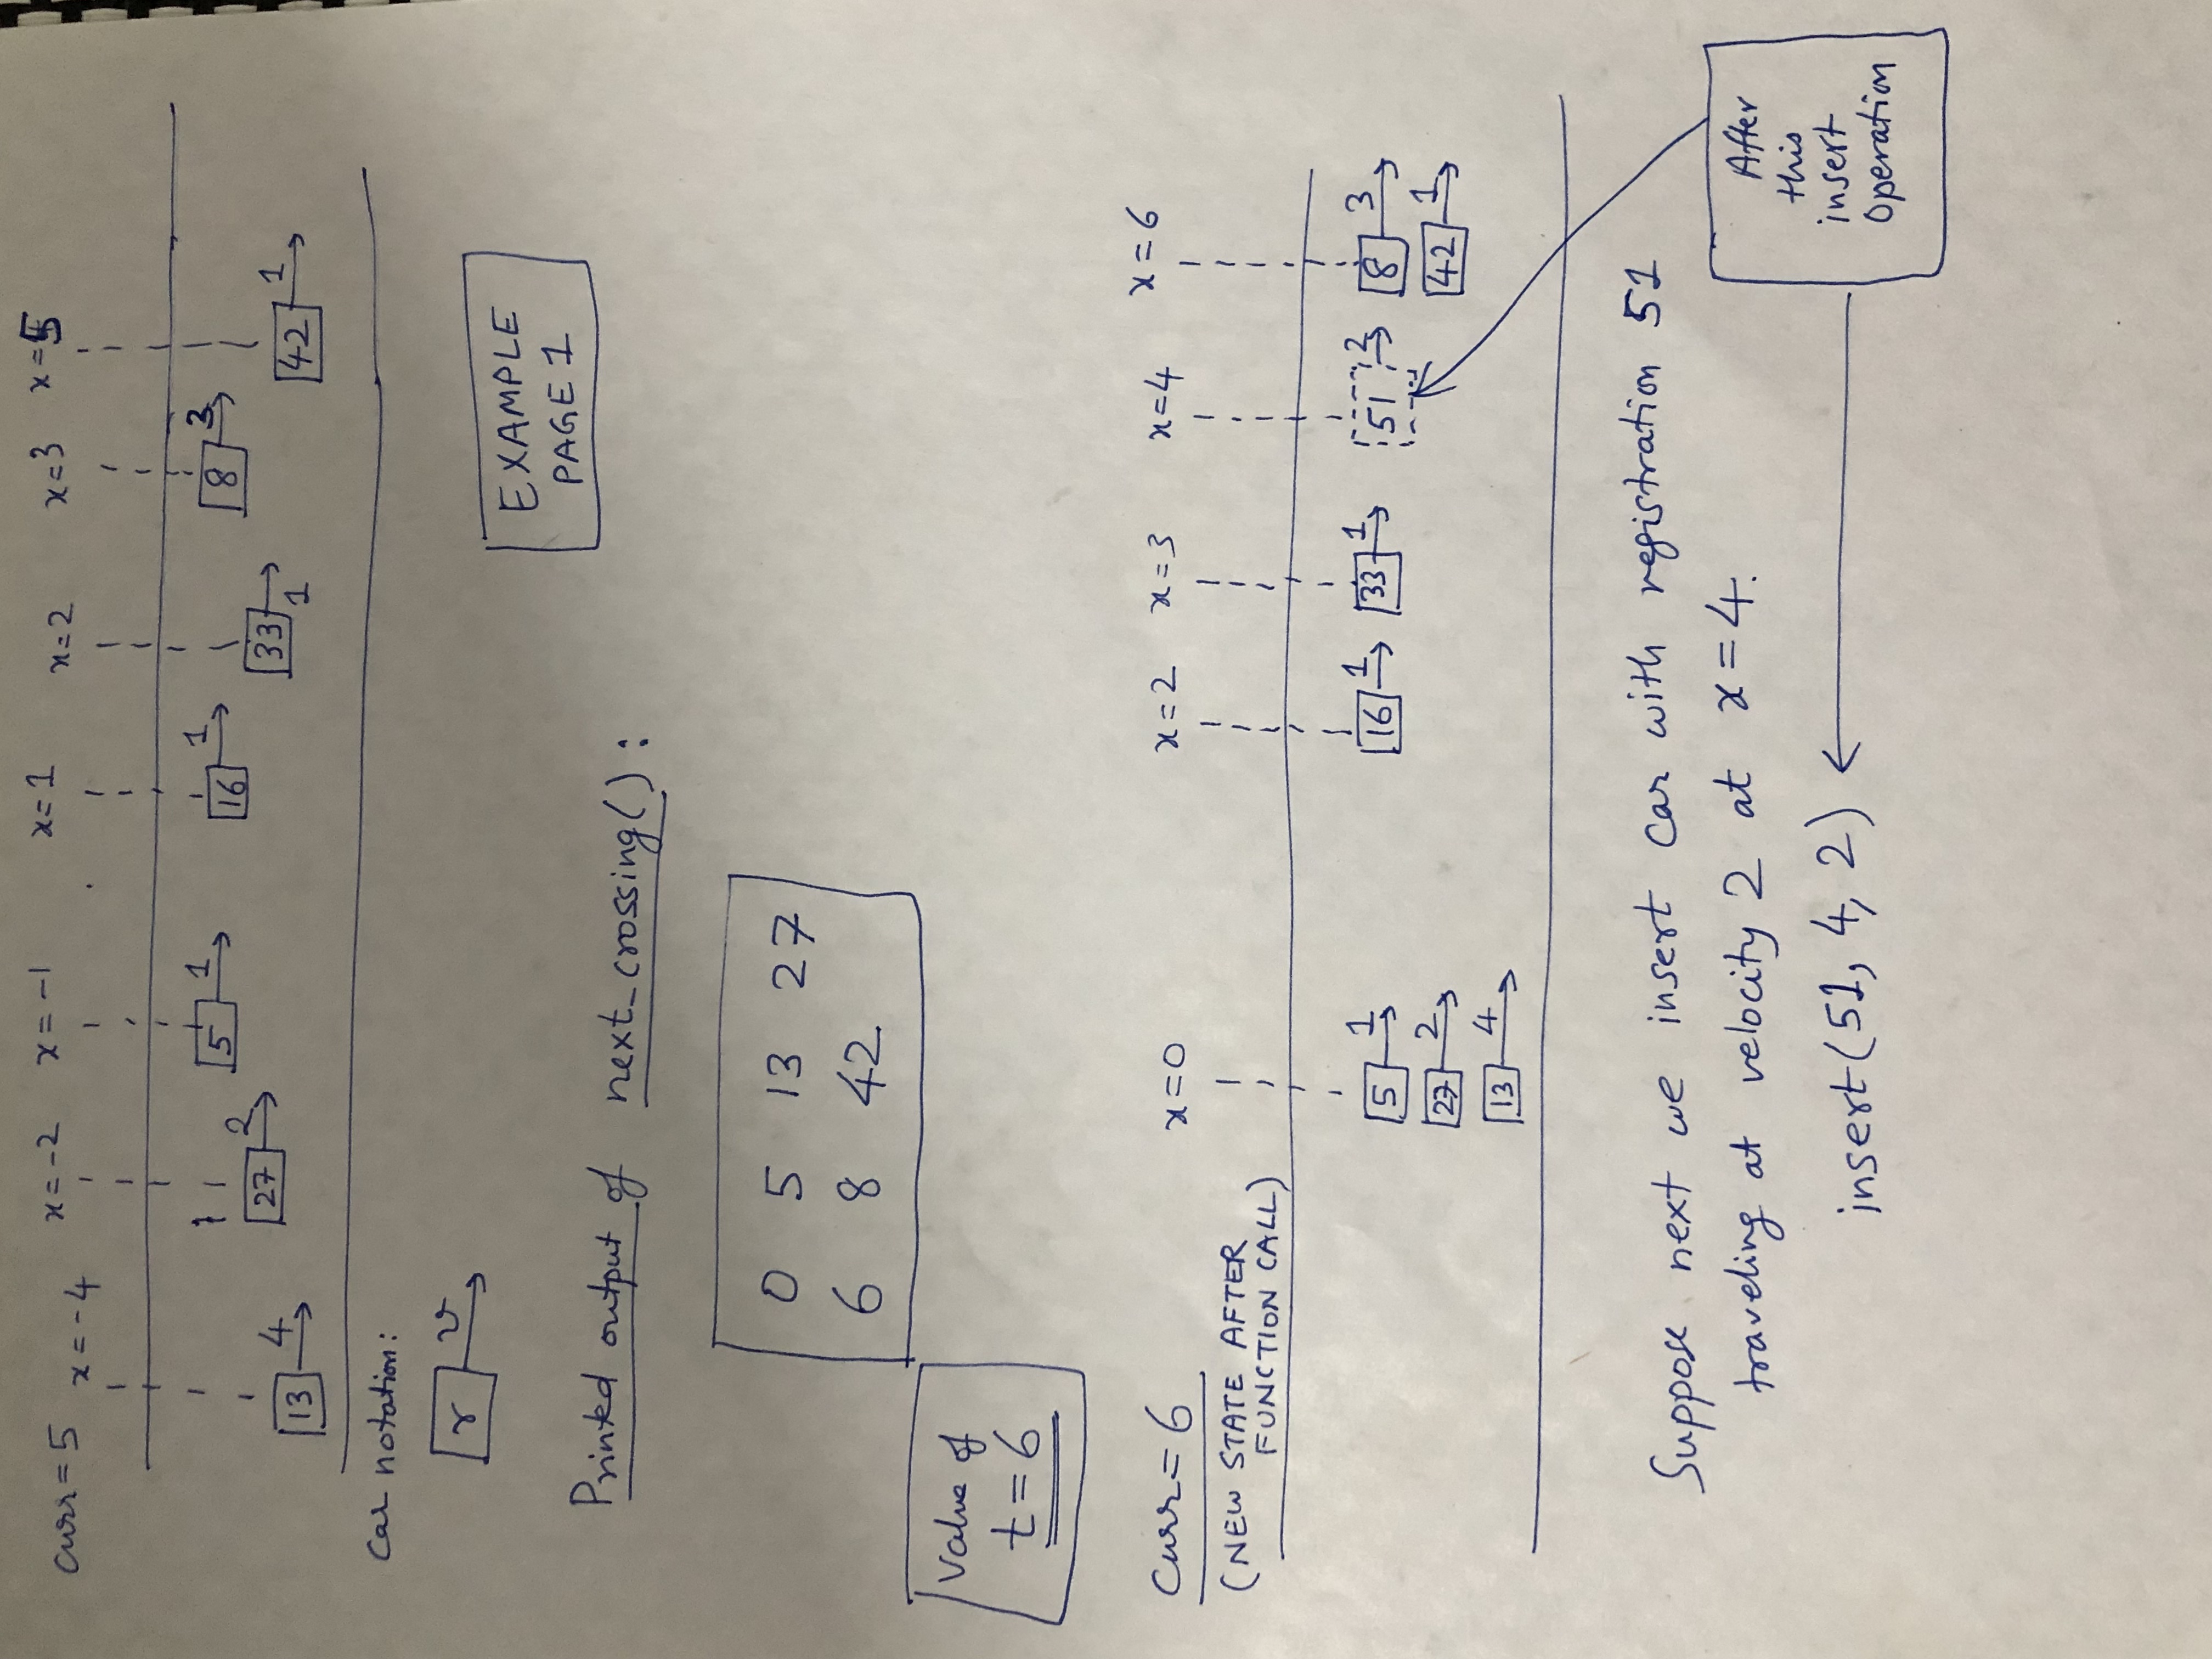 curr = 5 x = -4 x = -2 x = -1 x = 1 x = 2 x = 3 x = 5
13 4 27 2 5 1 16 1 33 1 8 3 42 1
Car notation:
r v
EXAMPLE
PAGE 1
Printed output of next_crossing():
0 5 13 27
6 8 42
Value of
t = 6
Curr = 6 x = 0 x = 2 x = 3 x = 4 x = 6
(NEW STATE AFTER
FUNCTION CALL)
5 1 16 1 33 1 51 2 8 3
27 2 42 1
13 4
Suppose next we insert car with registration 51
traveling at velocity 2 at x = 4.
insert(51, 4, 2)
After
this
insert
Operation